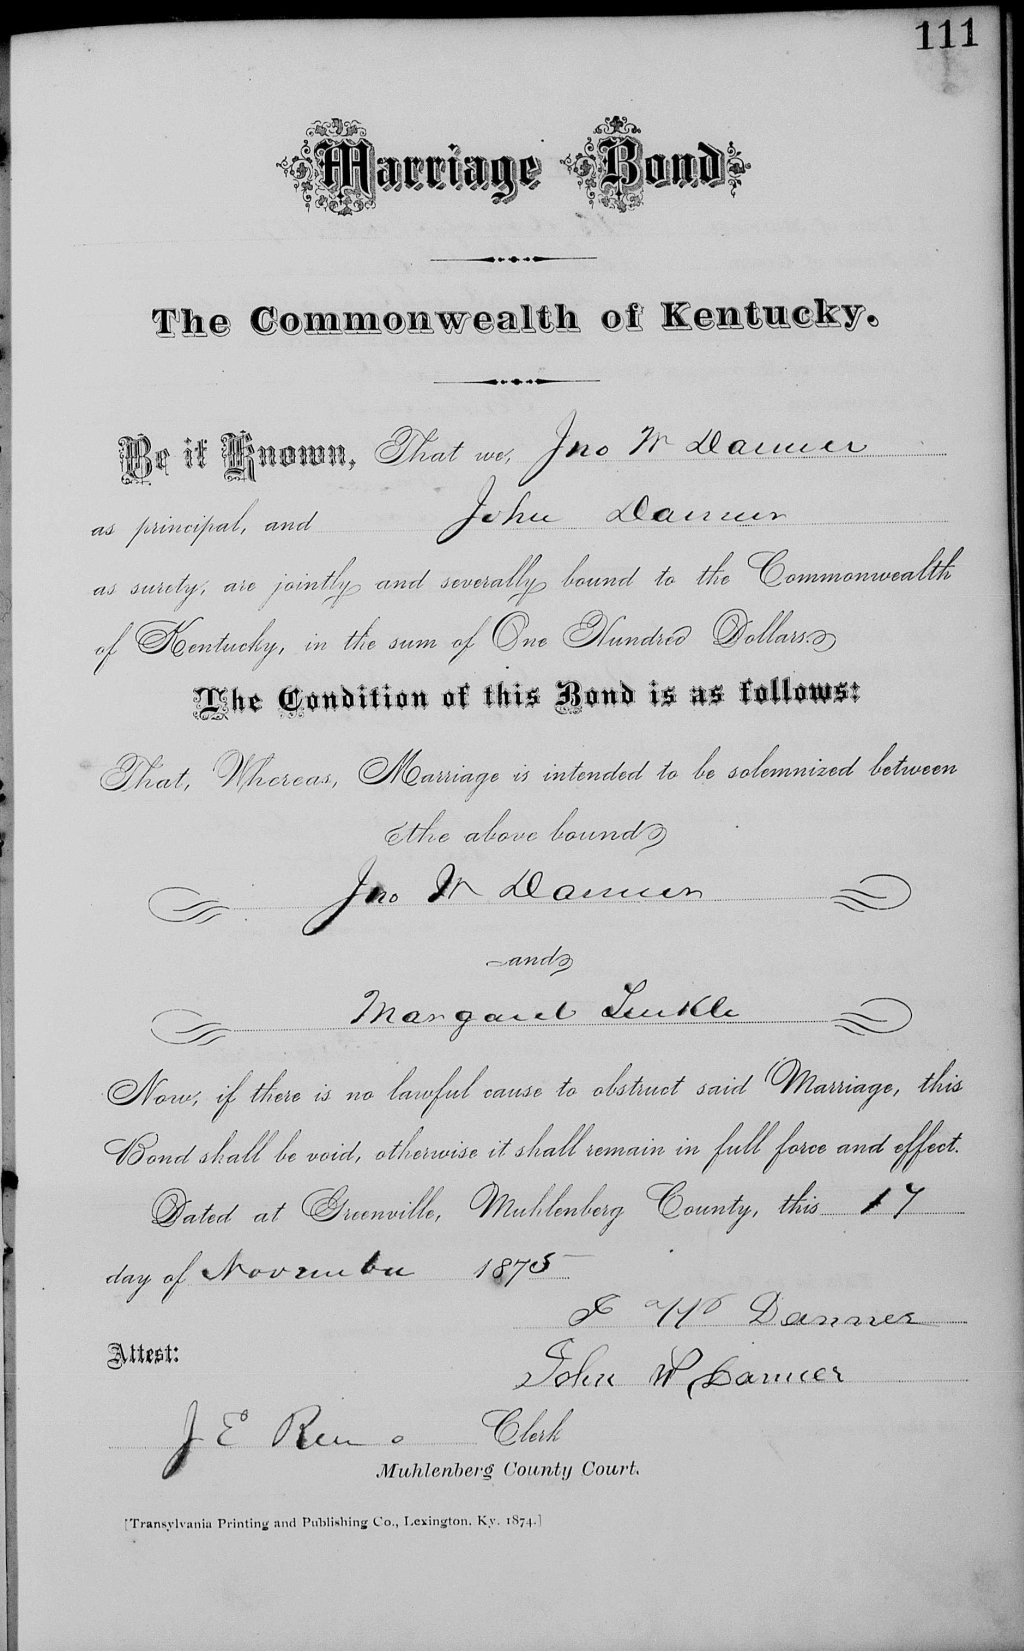 111
Marriage Bond
The Commonwealth of Kentucky.
Be it Known, That we, Jno W Danner
as principal, and John Danner
as surety, are jointly and severally bound to the Commonwealth
of Kentucky, in the sum of One Hundred Dollars.
The Condition of this Bond is as follows:
That, Whereas, Marriage is intended to be solemnized between
the above bound
Jno W Danner
and
Margaret
Now, if there is no lawful cause to obstruct said Marriage, this
Bond shall be void, otherwise it shall remain in full force and effect.
Dated at Greenville, Muhlenberg County, this 17
day of November 1875
J W Danner
Attest:
John W Danner
J E Reno Clerk
Muhlenberg County Court.
[Transylvania Printing and Publishing Co., Lexington, Ky. 1874.]